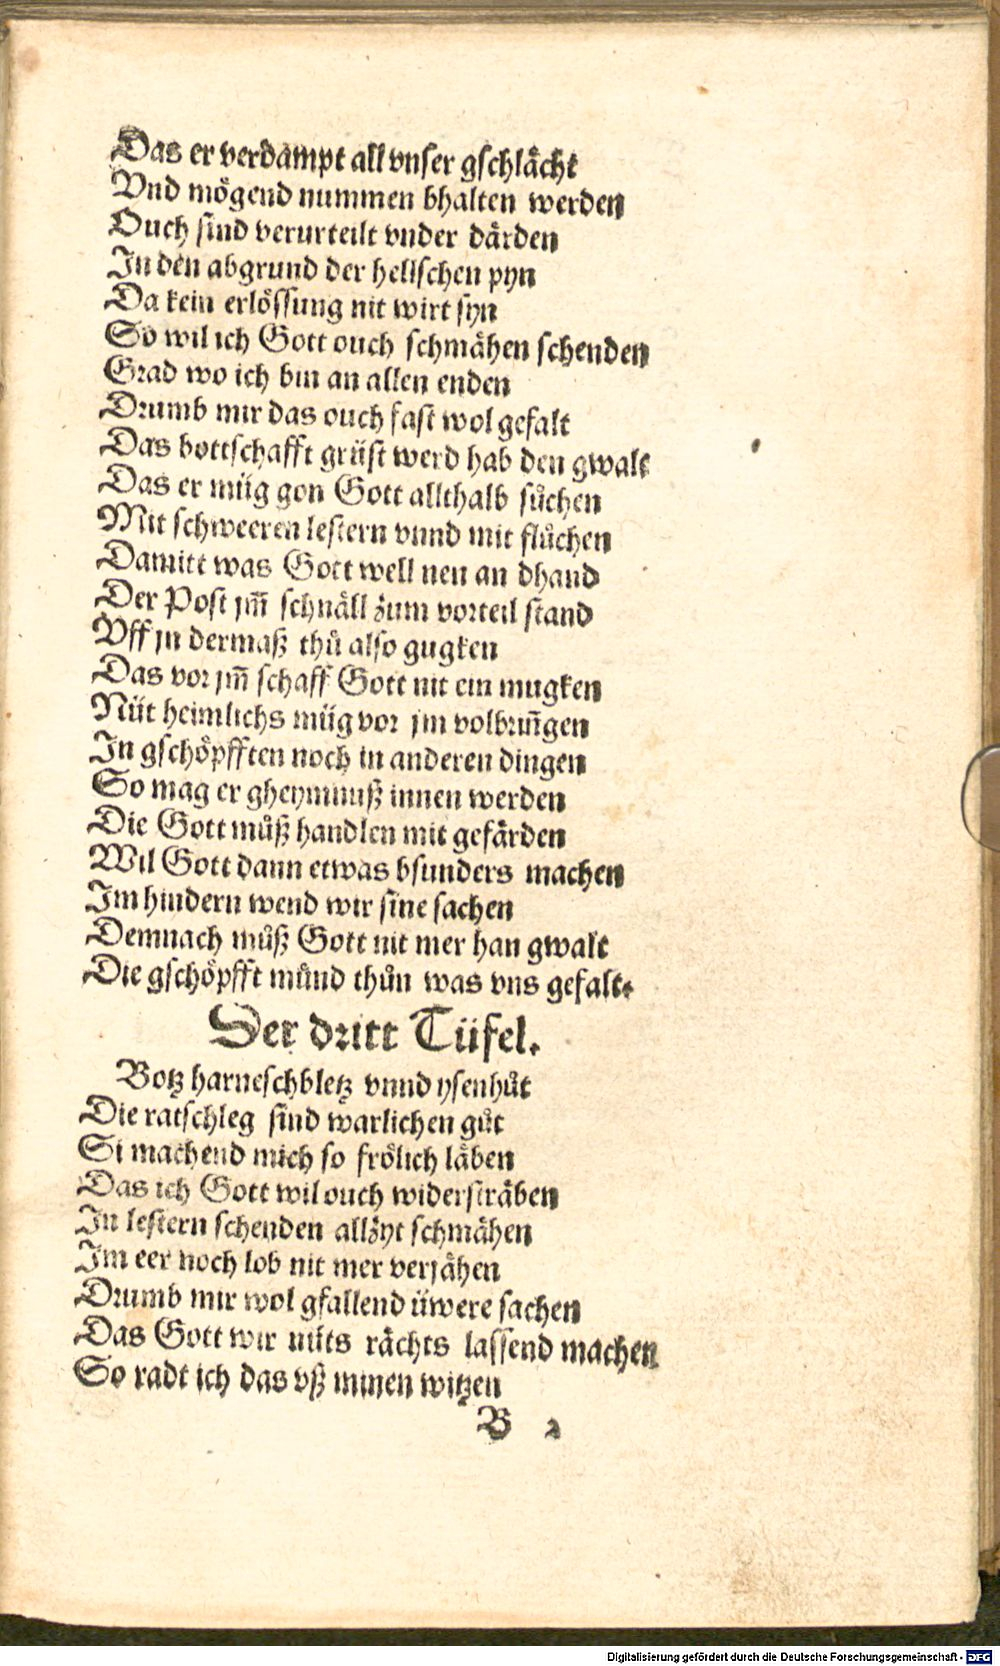 Das er verdampt all vnser gschlächt
Vnd mögend nummen bhalten werden
Ouch sind verurteilt vnder därden
In den abgrund der hellschen pyn
Da kein erlössung nit wirt syn
So wil ich Gott ouch schmähen schenden
Grad wo ich bin an allen enden
Drumb mir das ouch fast wol gefalt
Das bottschafft grüst werd hab den gwalt
Das er müg gon Gott allthalb sůchen
Mit schweeren lestern vnnd mit flůchen
Damitt was Gott well nen an dhand
Der Post jm̃ schnäll zum vorteil stand
Vff jn dermaß thů also gugken
Das vor jm̃ schaff Gott nit ein mugken
Nüt heimlichs müg vor jm volbrin̄gen
In gschöpfften noch in anderen dingen
So mag er gheymnuß innen werden
Die Gott můß handlen mit gefärden
Wil Gott dann etwas bsunders machen
Im hindern wend wir sine sachen
Demnach můß Gott nit mer han gwalt
Die gschöpfft můnd thůn was vns gefalt.
Der dritt Tüfel.
Botz harneschbletz vnnd ysenhůt
Die ratschleg sind warlichen gůt
Si machend mich so frölich läben
Das ich Gott wil ouch widersträben
In lestern schenden allzyt schmähen
Im eer noch lob nit mer verjähen
Drumb mir wol gfallend üwere sachen
Das Gott wir nüts rächts lassend machen
So radt ich das vß minen witzen
B 2
Digitalisierung gefördert durch die Deutsche Forschungsgemeinschaft - DFG